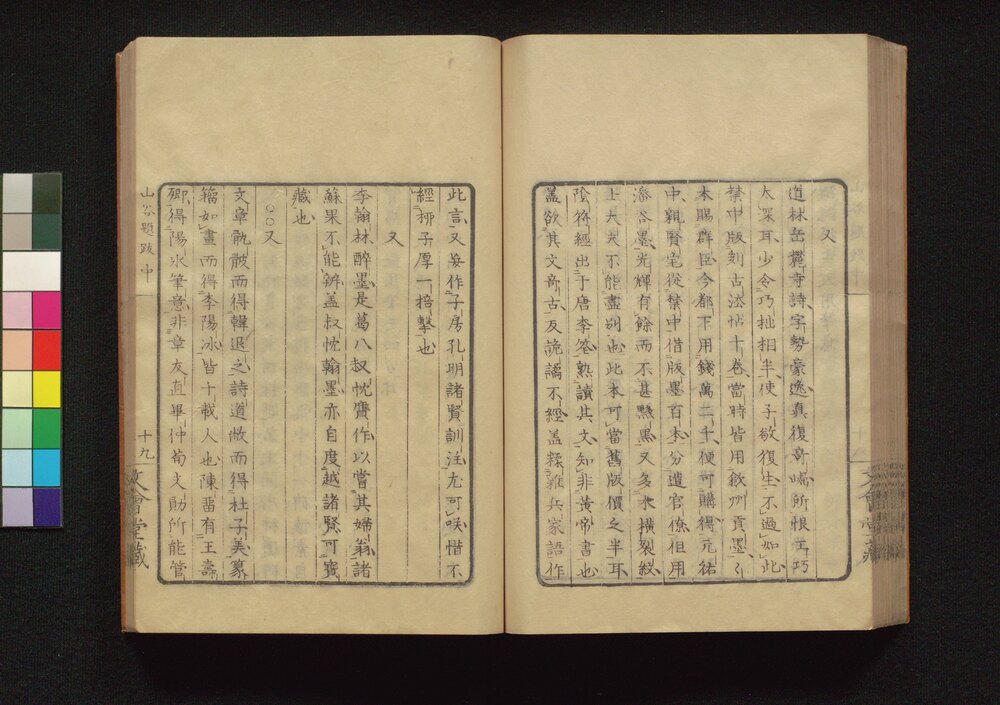 又
道林岳麓寺詩字勢豪逸真復奇崛所恨工巧
太深耳少令巧拙相半使子敬復生不過如此
禁中版刻古法帖十卷當時皆用歙州貢墨墨
本賜群臣今都下用錢萬二千便可購得元祐
中親賢宅從禁中借版墨百本分遺官僚但用
潘谷墨光輝有餘而不甚黟黑又多木橫裂紋
士大夫不能盡別也此本可當舊版價之半耳
陰符經出于唐李筌熟讀其文知非黃帝書也
蓋欲其文奇古反詭譎不經蓋糅雜兵家語作
此言又妄作子房孔明諸賢訓注尤可咲惜不
經栁子厚一掊擊也
又
李翰林醉墨是葛八叔忱贋作以嘗其婦翁諸
蘇果不能辨蓋叔忱翰墨亦自度越諸賢可寶
藏也
○○又
文章骩骳而得韓退之詩道敝而得杜子美篆
籀如畫而得李陽冰皆千載人也陳留有王壽
卿得陽冰筆意非章友直畢仲荀文勛所能管
山谷題跋中
十九
文會堂藏
文會堂藏